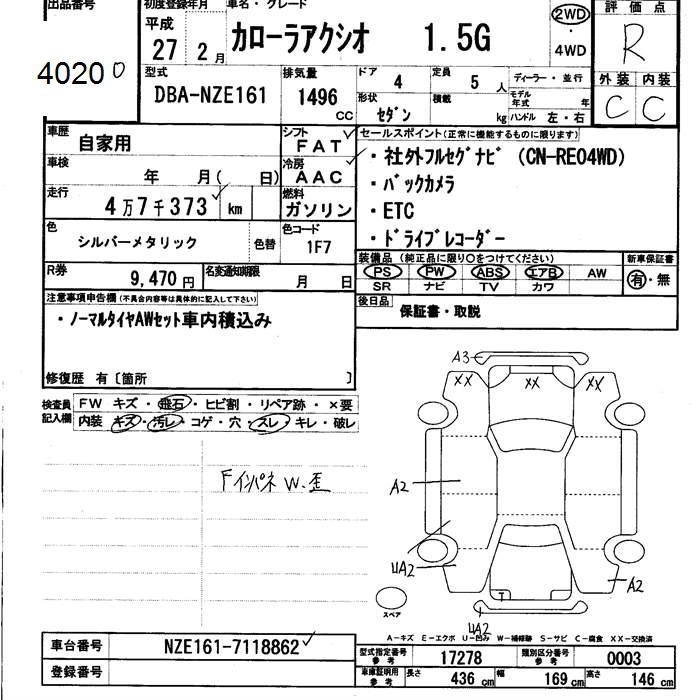 出品番号
40200
初度登録年月
平成
27 2月
車名・グレード
カローラアクシオ 1.5G
2WD
4WD
評価点
R
外装 内装
C C
型式
DBA-NZE161
排気量
1496 CC
ドア 4
定員 5人
形状 セダン
積載 kg
ディーラー・並行
モデル年式 年
ハンドル 左・右
車歴
自家用
車検
年 月(日)
走行
4万7千373 km
色
シルバーメタリック
色替
シフト
FAT
冷房
AAC
燃料
ガソリン
色コード
1F7
R券
9,470円
名変通知期限
月 日
セールスポイント(正常に機能するものに限ります)
・社外フルセグナビ (CN-RE04WD)
・バックカメラ
・ETC
・ドライブレコーダー
装備品 (純正品に限り○をつけてください)
PS PW ABS エアB AW
SR ナビ TV カワ
新車保証書
有・無
後日品
保証書・取説
注意事項申告欄(不具合内容等は具体的に記入して下さい)
・ノーマルタイヤAWセット車内積込み
修復歴 有〔箇所 〕
検査員
記入欄
FW キズ・飛石・ヒビ割・リペア跡・×要
内装 キズ・汚レ・コゲ・穴・スレ・キレ・破レ
Fインパネ W.歪
A3
XX XX XX
A2
UA2
A2
T
UA2
スペア
A-キズ E-エクボ U-凹み W-補修跡 S-サビ C-腐食 XX-交換済
車台番号
NZE161-7118862
登録番号
型式指定番号 参考
17278
類別区分番号 参考
0003
車庫証明用 参考
長さ 436 cm
幅 169 cm
高さ 146 cm